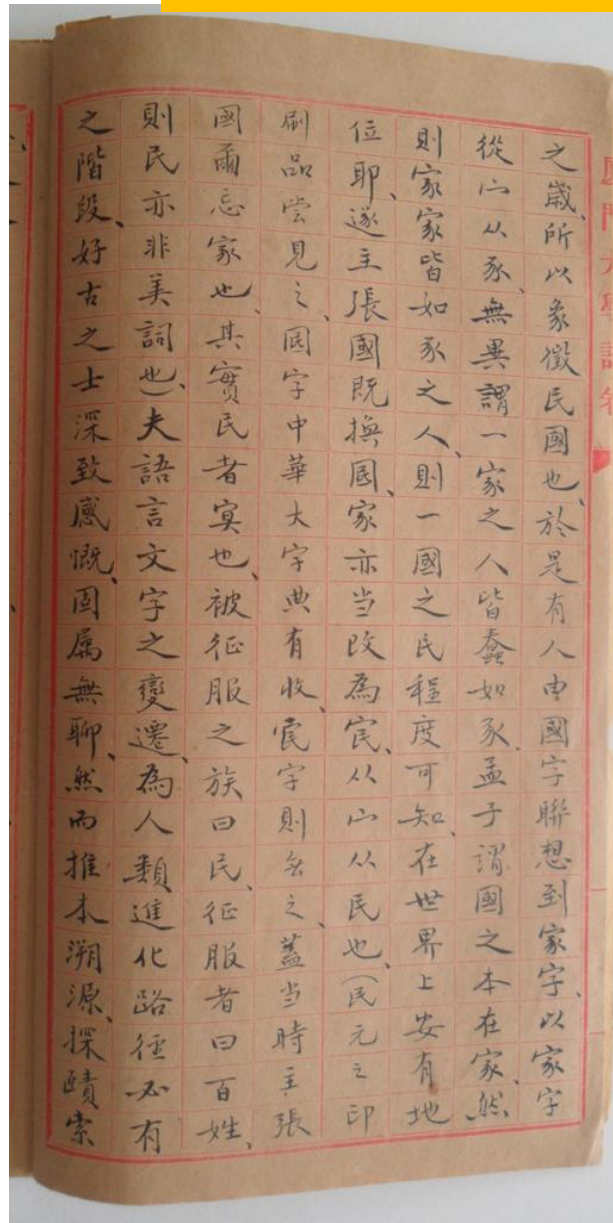 之歲、所以象徵民國也、於是有人由國字聯想到家字、以家字
從宀从豕、無異謂一家之人皆蠢如豕、孟子謂國之本在家、然
則家家皆如豕之人、則一國之民程度可知、在世界上安有地
位耶、遂主張國既換囻、家亦当改為宐、从宀从民也、(民元之印
刷品尝見之、囻字中華大字典有收、字則無之、蓋当時主張
國爾忘家也、其實民者冥也、被征服之族曰民、征服者曰百姓、
則民亦非美詞也)、夫語言文字之變遷、為人類進化路徑必有
之階段、好古之士深致感慨、固属無聊、然而推本溯源、探賾索